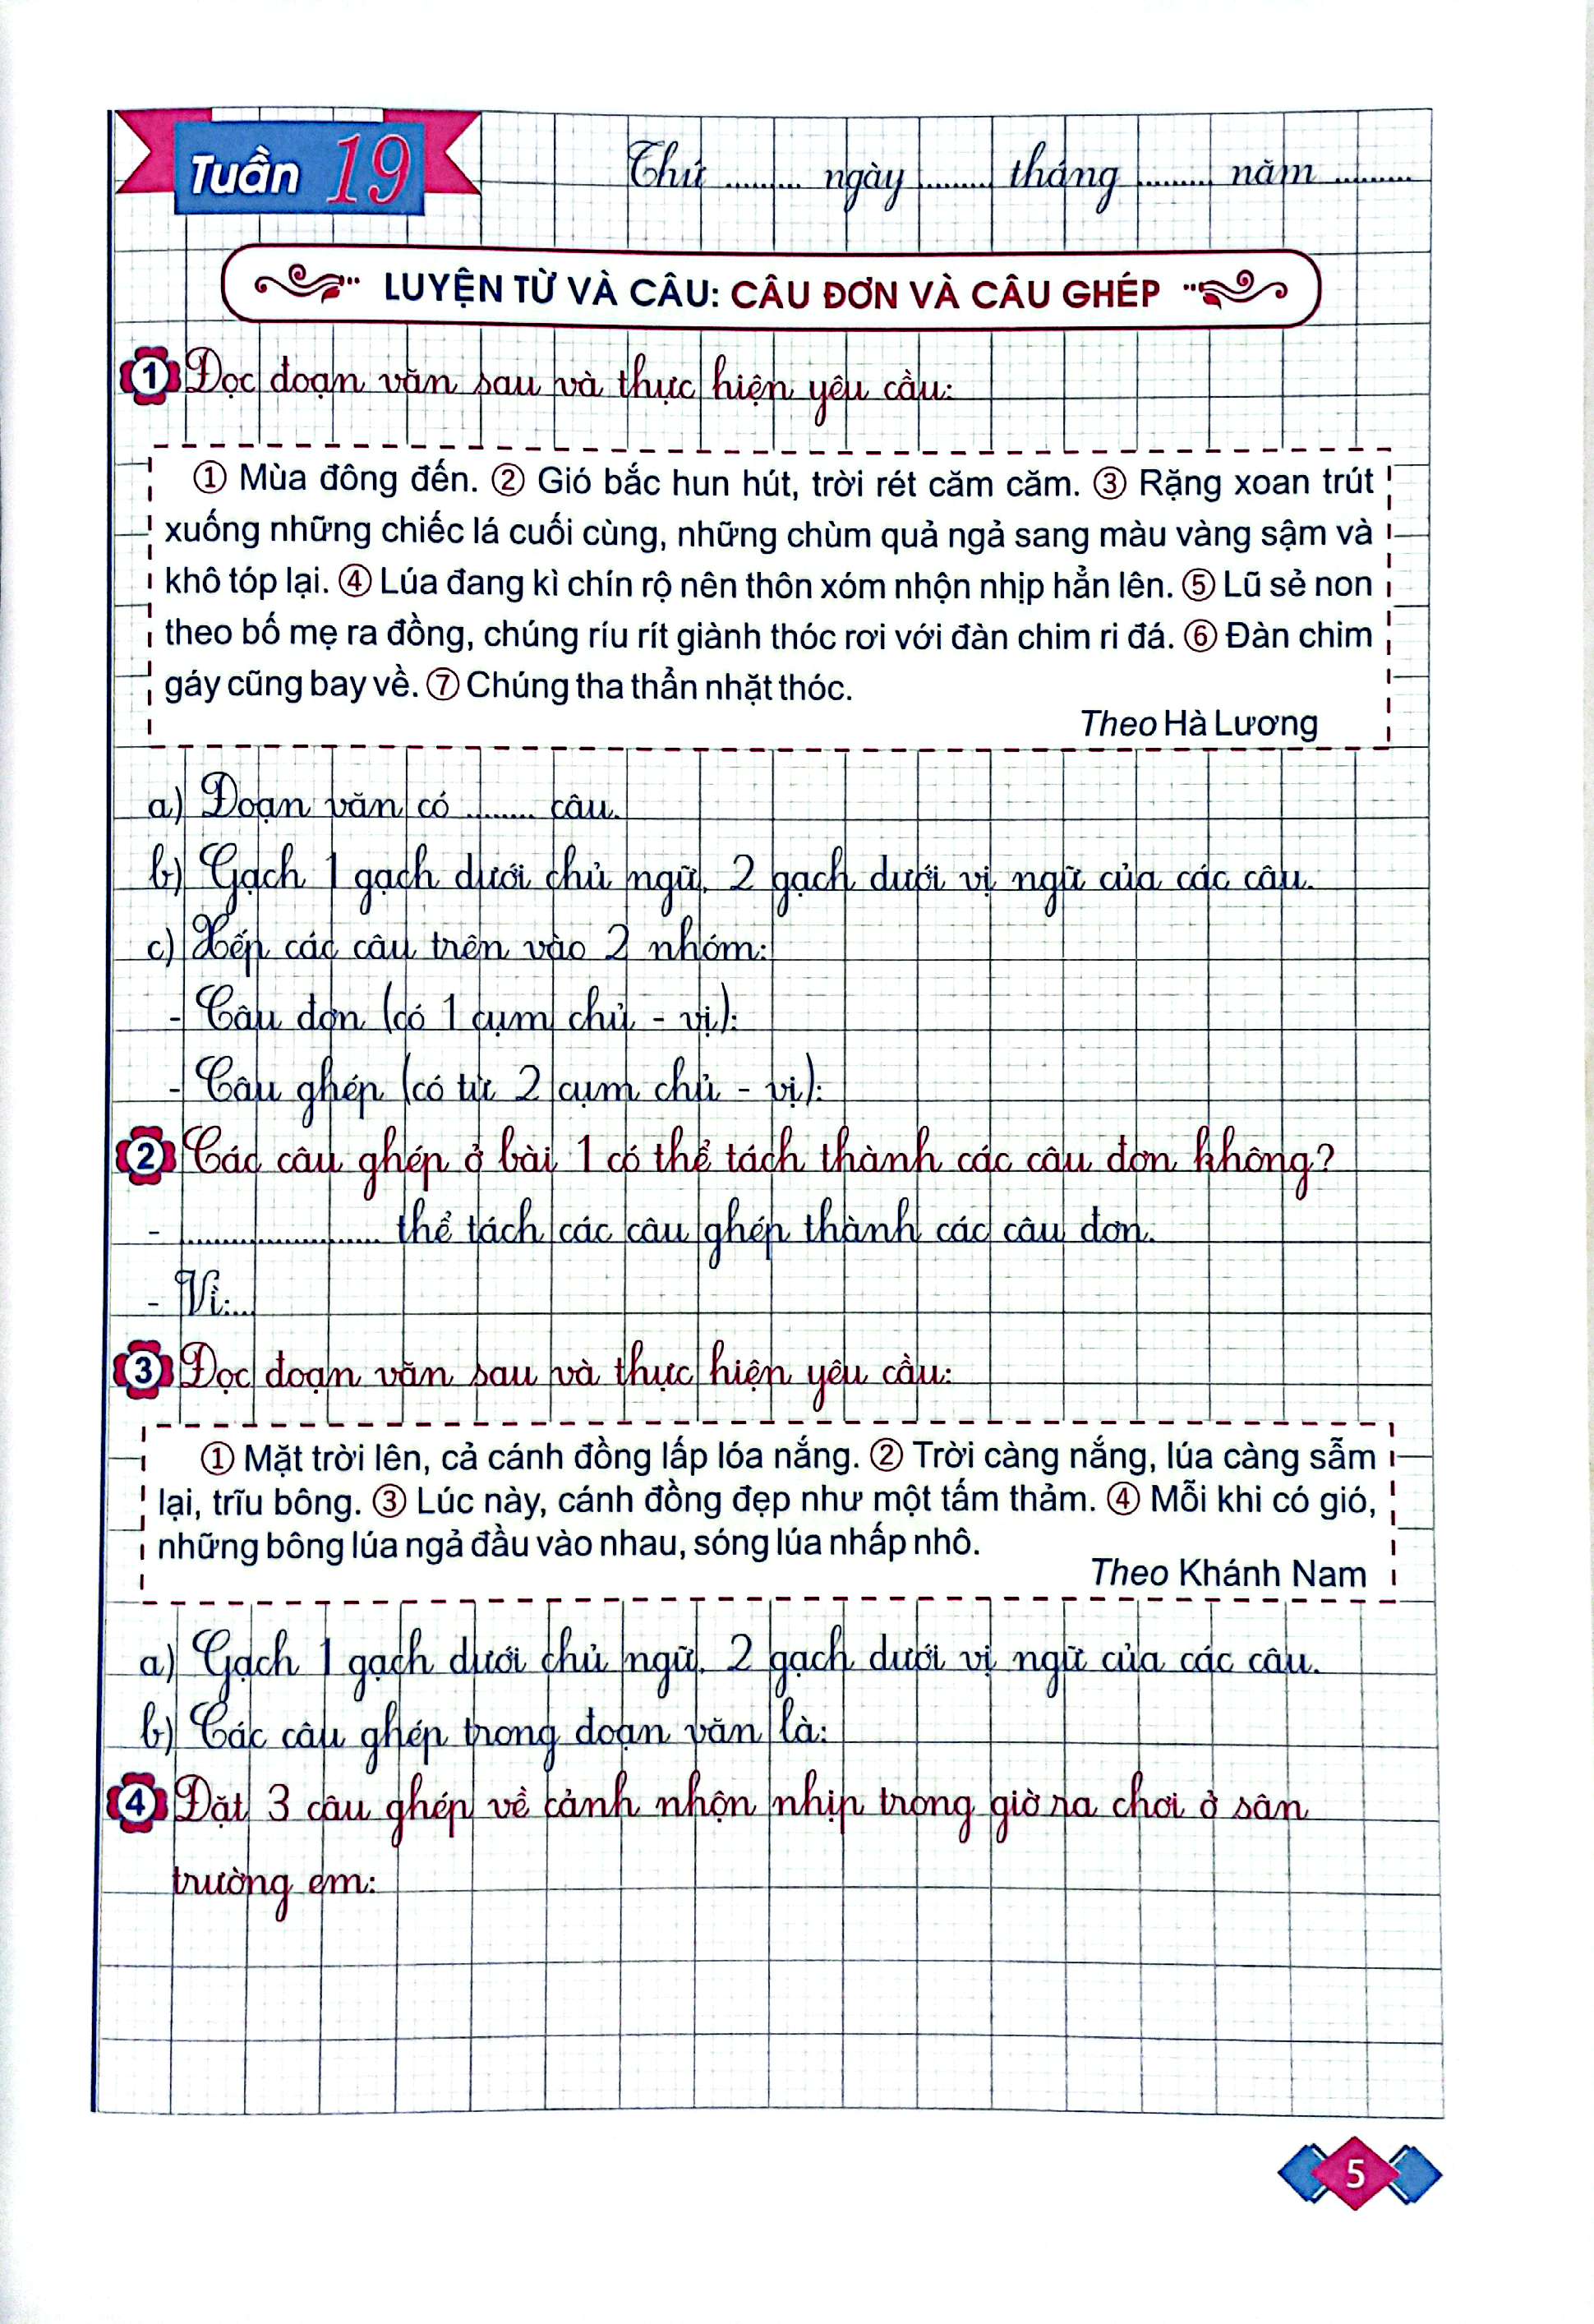 Tuần 19
Thứ ........ ngày ........ tháng ........ năm ........
LUYỆN TỪ VÀ CÂU: CÂU ĐƠN VÀ CÂU GHÉP
1 Đọc đoạn văn sau và thực hiện yêu cầu:
① Mùa đông đến. ② Gió bắc hun hút, trời rét căm căm. ③ Rặng xoan trút
xuống những chiếc lá cuối cùng, những chùm quả ngả sang màu vàng sậm và
khô tóp lại. ④ Lúa đang kì chín rộ nên thôn xóm nhộn nhịp hẳn lên. ⑤ Lũ sẻ non
theo bố mẹ ra đồng, chúng ríu rít giành thóc rơi với đàn chim ri đá. ⑥ Đàn chim
gáy cũng bay về. ⑦ Chúng tha thẩn nhặt thóc.
Theo Hà Lương
a) Đoạn văn có ........ câu.
b) Gạch 1 gạch dưới chủ ngữ, 2 gạch dưới vị ngữ của các câu.
c) Xếp các câu trên vào 2 nhóm:
- Câu đơn (có 1 cụm chủ - vị):
- Câu ghép (có từ 2 cụm chủ - vị):
2 Các câu ghép ở bài 1 có thể tách thành các câu đơn không?
- ...................... thể tách các câu ghép thành các câu đơn.
- Vì:...
3 Đọc đoạn văn sau và thực hiện yêu cầu:
① Mặt trời lên, cả cánh đồng lấp lóa nắng. ② Trời càng nắng, lúa càng sẫm
lại, trĩu bông. ③ Lúc này, cánh đồng đẹp như một tấm thảm. ④ Mỗi khi có gió,
những bông lúa ngả đầu vào nhau, sóng lúa nhấp nhô.
Theo Khánh Nam
a) Gạch 1 gạch dưới chủ ngữ, 2 gạch dưới vị ngữ của các câu.
b) Các câu ghép trong đoạn văn là:
4 Đặt 3 câu ghép về cảnh nhộn nhịp trong giờ ra chơi ở sân
trường em:
5